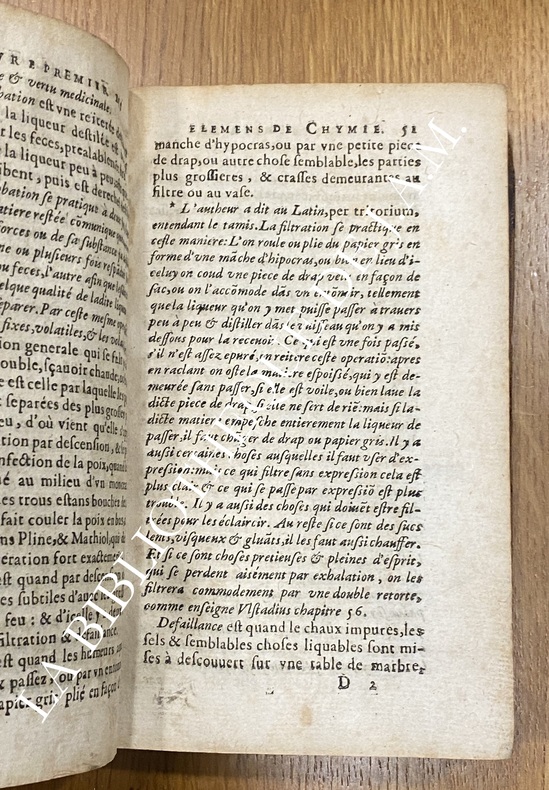 VRE PREMIER.
e & vertu medicinale.
bation est vne reiterée
la liqueur destilée est
les feces, prealablement
la liqueur peu à peu
ibent, puis est derechef
obation se pratique à
atiere restée cōmunique
orces ou de sa substance
ne ou plusieurs fois
ou feces, l'autre afin que
elque qualité de ladite
eparer. Par ceste mesme
fixes, volatiles, & les
ion generale qui se fait
ouble, sçauoir chaude,
e est celle par laquelle
separées des plus
d'où vient qu'elle
tion par descension, &
nfection de la poix,
sé au milieu d'vn
es trous estans bouchez
fait couler la poix en bas
ns Pline, & Mathiol, qui
eration fort exactement
est quand par
es subtiles d'auec
feu : & d'icelle
filtration & defaillance.
est quand les
& passez, ou par vn
apier gris plié en façon
ELEMENS DE CHYMIE. 51
manche d'hypocras, ou par vne petite piece
de drap, ou autre chose semblable, les parties
plus grossieres, & crasses demeurantes au
filtre ou au vase.
* L'autheur a dit au Latin, per tritorium,
entendant le tamis. La filtration se practique en
ceste maniere: L'on roule ou plie du papier gris en
forme d'vne māche d'hipocras, ou bien en lieu d'i-
celuy on coud vne piece de drap velu en façon de
sac, ou on l'accōmode dās vn entōnoir, tellement
que la liqueur qu'on y met puisse passer à trauers
peu à peu & distiller dās le vaisseau qu'on y a mis
dessous pour la receuoir. Ce qui est vne fois passé,
s'il n'est assez epuré, on reitere ceste operatiō: apres
en raclant on oste la matiere espoisse, qui y est de-
meurée sans passer, si elle est voile, ou bien laue la
dicte piece de drap, si elle ne sert de riē: mais si la-
dicte matiere empesche entierement la liqueur de
passer, il faut chāger de drap ou papier gris. Il y a
aussi certaines choses ausquelles il faut vser d'ex-
pression: mais ce qui filtre sans expression cela est
plus clair & ce qui se passe par expressiō est plus
trouble. Il y a aussi des choses qui doiuēt estre fil-
trées pour les éclaircir. Au reste si ce sont des sucs
lents, visqueux & gluāts, il les faut aussi chauffer.
Et si ce sont choses pretieuses & pleines d'esprit,
qui se perdent aisément par exhalation, on les
filtrera commodement par vne double retorte,
comme enseigne Vlstadius chapitre 56.
Defaillance est quand le chaux impures, les
sels & semblables choses liquables sont mi-
ses à descouuert sur vne table de marbre,
D 2